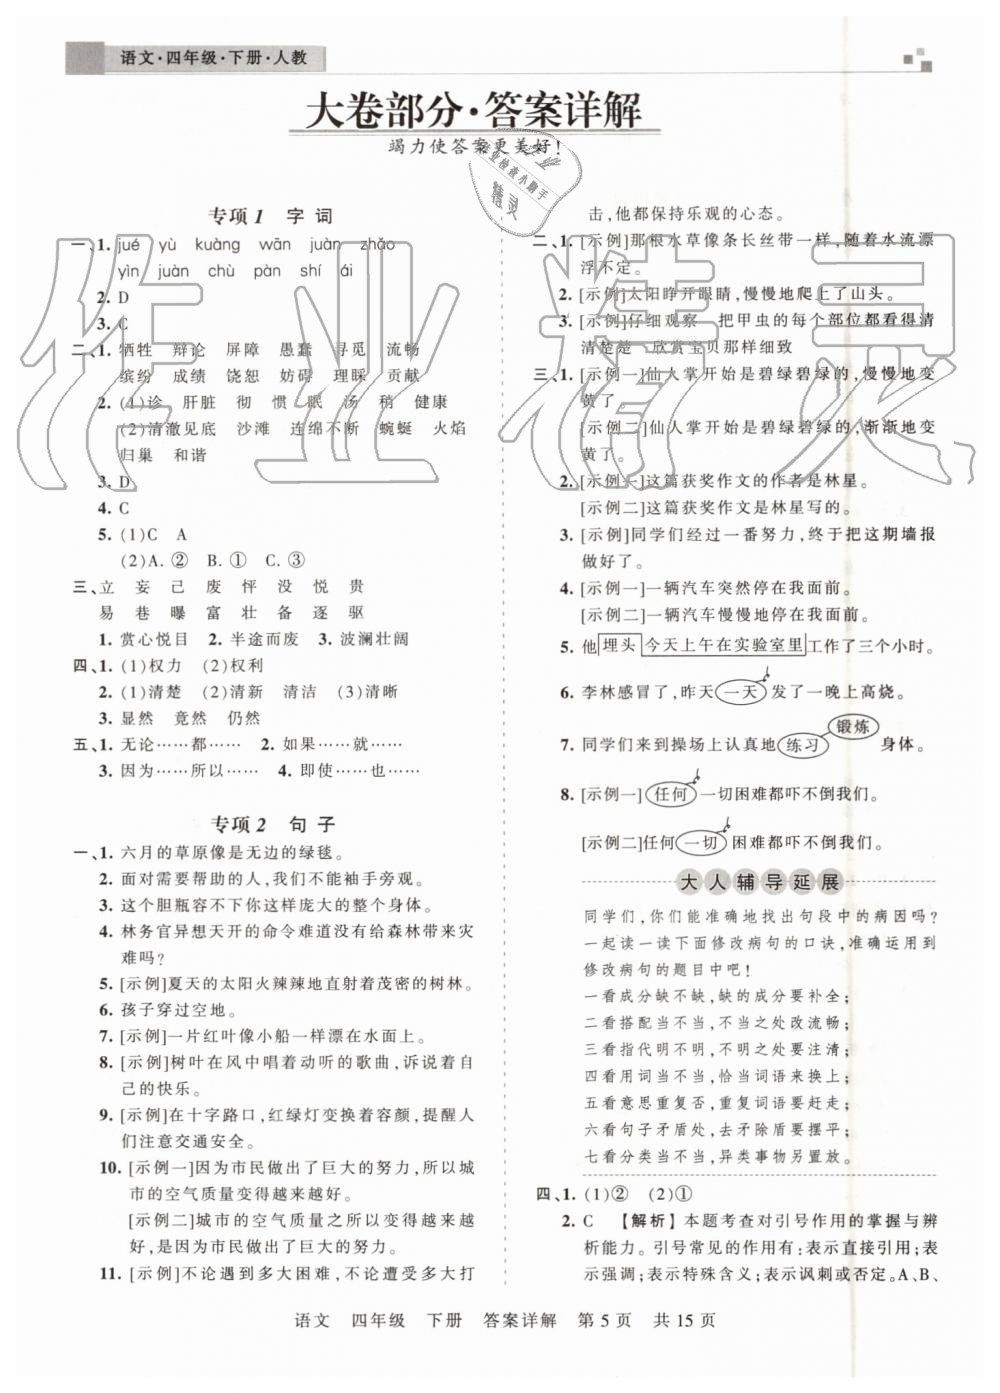 语文·四年级·下册·人教
大卷部分·答案详解
竭力使答案更美好！
作业
作业检查小助手
精灵
作业精灵
专项1 字 词
一、1. jué yù kuàng wān juàn zhǎo
yìn juàn chù pàn shí ái
2. D
3. C
二、1. 牺牲 辩论 屏障 愚蠢 寻觅 流畅
缤纷 成绩 饶恕 妨碍 理睬 贡献
2. (1)诊 肝脏 彻 惯 眠 汤 稍 健康
(2)清澈见底 沙滩 连绵不断 蜿蜒 火焰
归巢 和谐
3. D
4. C
5. (1)C A
(2)A. ② B. ① C. ③
三、立 妄 己 废 怦 没 悦 贵
易 巷 曝 富 壮 备 逐 驱
1. 赏心悦目 2. 半途而废 3. 波澜壮阔
四、1. (1)权力 (2)权利
2. (1)清楚 (2)清新 清洁 (3)清晰
3. 显然 竟然 仍然
五、1. 无论……都…… 2. 如果……就……
3. 因为……所以…… 4. 即使……也……
专项2 句 子
一、1. 六月的草原像是无边的绿毯。
2. 面对需要帮助的人,我们不能袖手旁观。
3. 这个胆瓶容不下你这样庞大的整个身体。
4. 林务官异想天开的命令难道没给森林带来灾
难吗?
5. [示例]夏天的太阳火辣辣地直射着茂密的树林。
6. 孩子穿过空地。
7. [示例]一片红叶像小船一样漂在水面上。
8. [示例]树叶在风中唱着动听的歌曲,诉说着自
己的快乐。
9. [示例]在十字路口,红绿灯变换着容颜,提醒人
们注意交通安全。
10. [示例一]因为市民做出了巨大的努力,所以城
市的空气质量变得越来越好。
[示例二]城市的空气质量之所以变得越来越
好,是因为市民做出了巨大的努力。
11. [示例]不论遇到多大困难,不论遭受多大打
击,他都保持乐观的心态。
二、1. [示例]那根水草像条长丝带一样,随着水流漂
浮不定。
2. [示例]太阳睁开眼睛,慢慢地爬上了山头。
3. [示例]仔细观察 把甲虫的每个部位都看得清
清楚楚 欣赏宝贝那样细致
三、1. [示例一]仙人掌开始是碧绿碧绿的,慢慢地变
黄了。
[示例二]仙人掌开始是碧绿碧绿的,渐渐地变
黄了。
2. [示例一]这篇获奖作文的作者是林星。
[示例二]这篇获奖作文是林星写的。
3. [示例]同学们经过一番努力,终于把这期墙报
做好了。
4. [示例一]一辆汽车突然停在我面前。
[示例二]一辆汽车慢慢地停在我面前。
5. 他埋头今天上午在实验室里工作了三个小时。
6. 李林感冒了,昨天一天发了一晚上高烧。
锻炼
7. 同学们来到操场上认真地练习身体。
8. [示例一]任何一切困难都吓不倒我们。
[示例二]任何一切困难都吓不倒我们。
大人辅导延展
同学们,你们能准确地找出句段中的病因吗?
一起读一读下面修改病句的口诀,准确运用到
修改病句的题目中吧!
一看成分缺不缺,缺的成分要补全;
二看搭配当不当,不当之处改流畅;
三看指代明不明,不明之处要注清;
四看用词当不当,恰当词语来换上;
五看意思重复否,重复词语要赶走;
六看句子矛盾处,去矛除盾要摆平;
七看分类当不当,异类事物另置放。
四、1. (1)② (2)①
2. C 【解析】本题考查对引号作用的掌握与辨
析能力。引号常见的作用有:表示直接引用;表
示强调;表示特殊含义;表示讽刺或否定。A、B、
语文 四年级 下册 答案详解 第5页 共15页